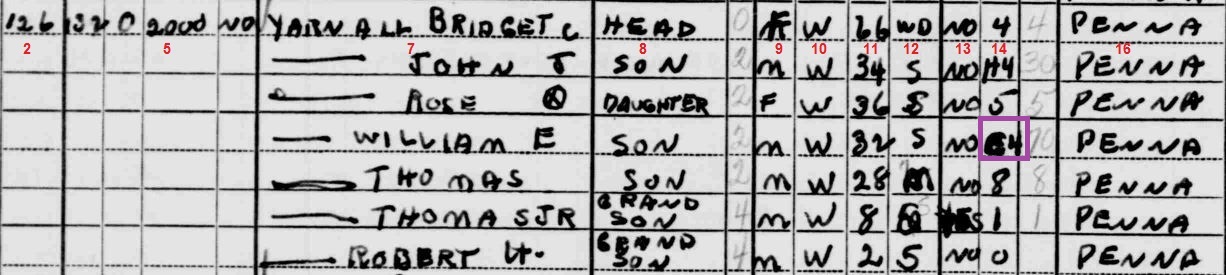 126 132 O 2000 NO YARNALL BRIDGET C HEAD 0 F W 66 WD NO 4 4 PENNA
2 5 7 8 9 10 11 12 13 14 16
JOHN J SON 2 M W 34 S NO H4 30 PENNA
ROSE DAUGHTER 2 F W 36 S NO 5 5 PENNA
WILLIAM E SON 2 M W 32 S NO C4 70 PENNA
THOMAS SON 2 M W 28 M NO 8 8 PENNA
THOMAS JR GRAND SON 4 M W 8 S YES 1 1 PENNA
ROBERT H. GRAND SON 4 M W 2 S NO 0 PENNA